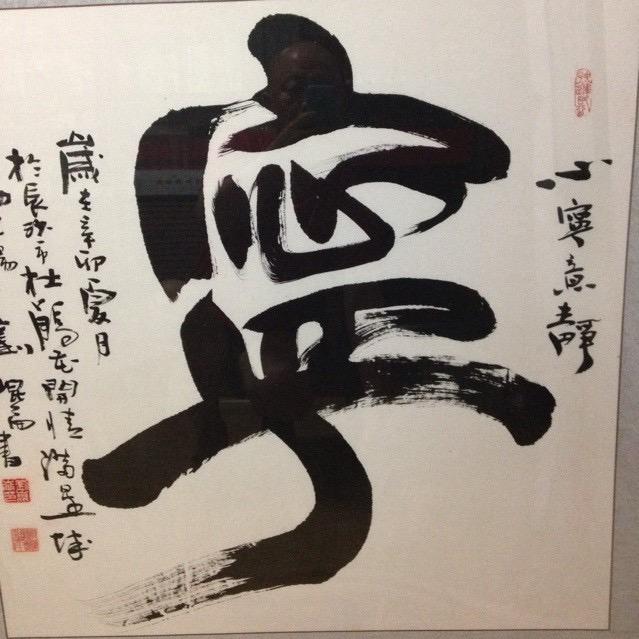 寧
心寧意靜
歲在辛卯夏月
於長沙市杜鵑花開情滿星城
書